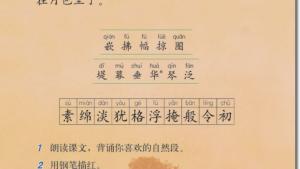 qiàn fú fú lüè quān
嵌 拂 幅 掠 圈
dī mù chuí huá qín fàn
堤 暮 垂 华 琴 泛
sù mián dàn yóu gé fú yǎn bān lìng chū
素 绵 淡 犹 格 浮 掩 般 令 初
1 朗读课文，背诵你喜欢的自然段。
2 用钢笔描红。